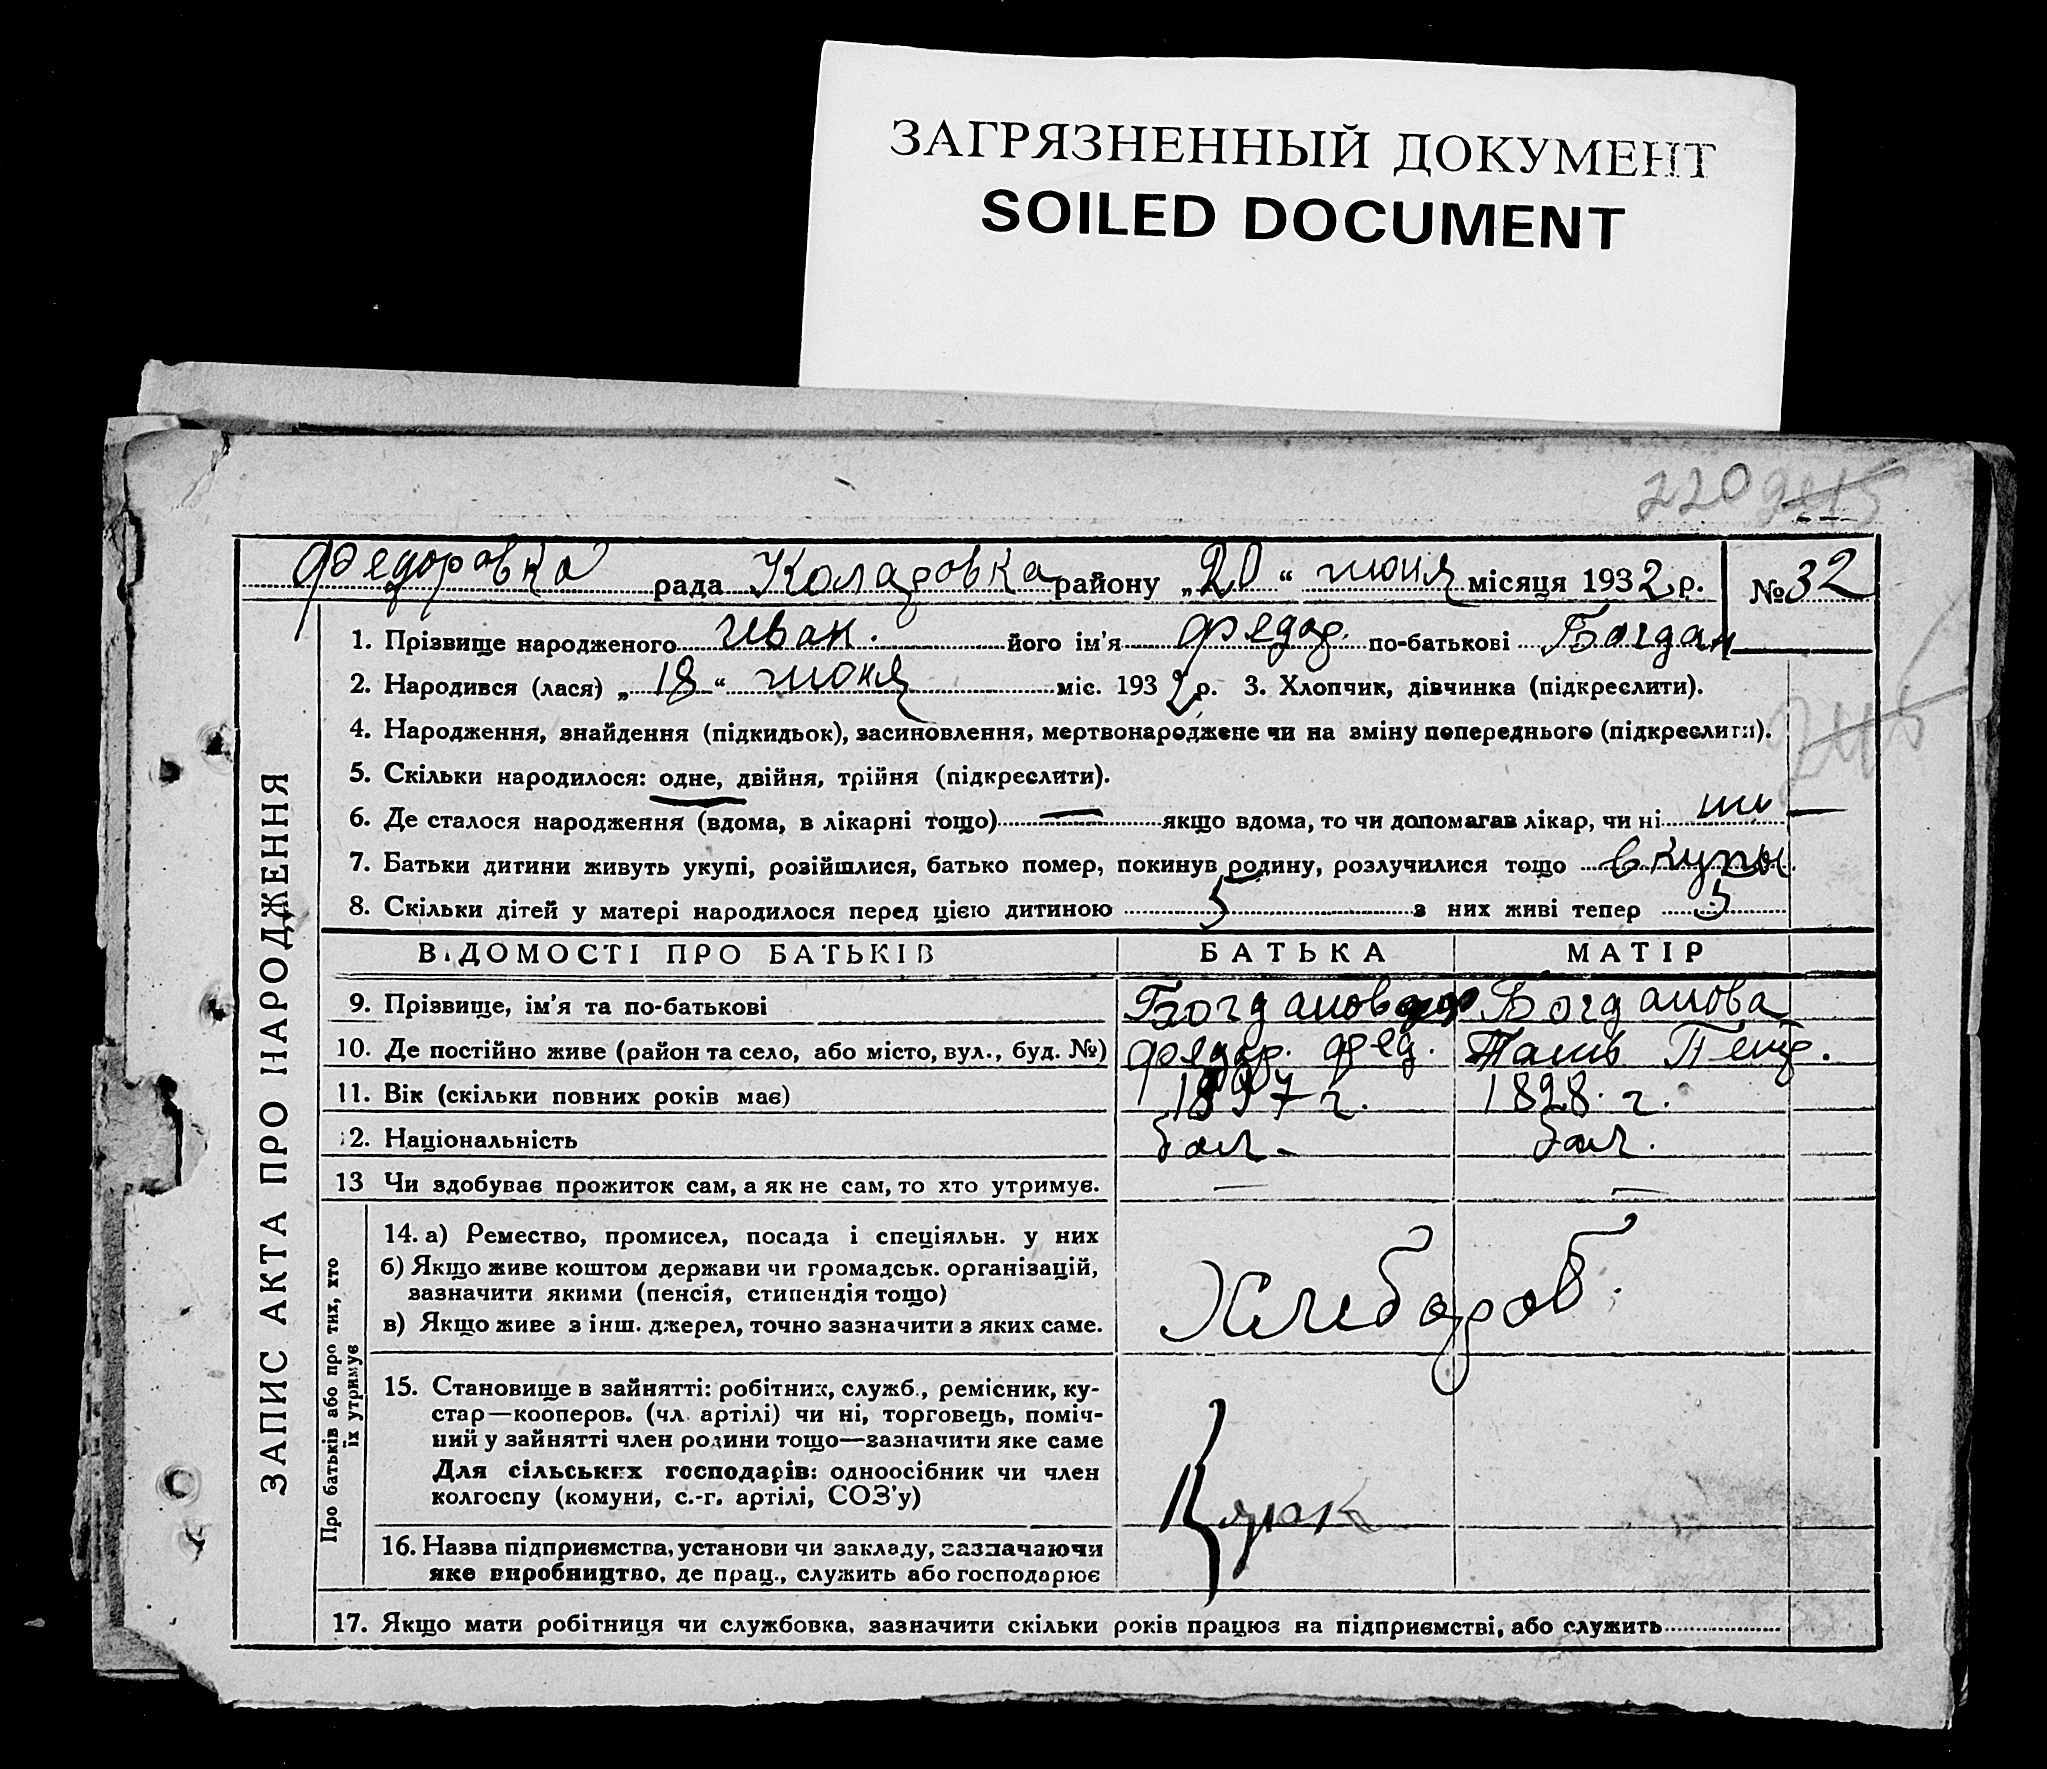 ЗАГРЯЗНЕННЫЙ ДОКУМЕНТ
SOILED DOCUMENT
220
Федоровка рада Коларовка району „20“ июня місяця 1932 р. № 32
1. Прізвище народженого Иван. його ім'я Федор. по-батькові Богдан
2. Народився (лася) „18“ июня міс. 1932 р. 3. Хлопчик, дівчинка (підкреслити).
4. Народження, знайдення (підкидьок), засиновлення, мертвонароджене чи на зміну попереднього (підкреслити).
5. Скільки народилося: одне, двійня, трійня (підкреслити).
6. Де сталося народження (вдома, в лікарні тощо) — якщо вдома, то чи допомагав лікар, чи ні ни —
7. Батьки дитини живуть укупі, розійшлися, батько помер, покинув родину, розлучилися тощо вкупы
8. Скільки дітей у матері народилося перед цією дитиною 5 з них живі тепер 5
ВІДОМОСТІ ПРО БАТЬКІВ БАТЬКА МАТІР
9. Прізвище, ім'я та по-батькові Богданов Богданова
10. Де постійно живе (район та село, або місто, вул., буд. №) Федор. Фед. Петр.
11. Вік (скільки повних років має) 1897 г. 1898. г.
12. Національність бол- бол.
13 Чи здобував прожиток сам, а як не сам, то хто утримує. — —
14. а) Ремество, промисел, посада і спеціяльн. у них
б) Якщо живе коштом держави чи громадськ. організацій,
зазначити якими (пенсія, стипендія тощо)
в) Якщо живе з інш. джерел, точно зазначити з яких саме.
Хлебороб.
15. Становище в зайнятті: робітник, служб., ремісник, ку-
стар—кооперов. (чл. артілі) чи ні, торговець, поміч-
ний у зайнятті член родини тощо—зазначити яке саме
Для сільських господарів: одноосібник чи член
колгоспу (комуни, с.-г. артілі, СОЗ'у)
16. Назва підприємства, установи чи закладу, зазначаючи
яке виробництво, де прац., служить або господарює
17. Якщо мати робітниця чи службовка, зазначити скільки років працює на підприємстві, або служить
ЗАПИС АКТА ПРО НАРОДЖЕННЯ
Про батьків або про тих, хто
їх утримує